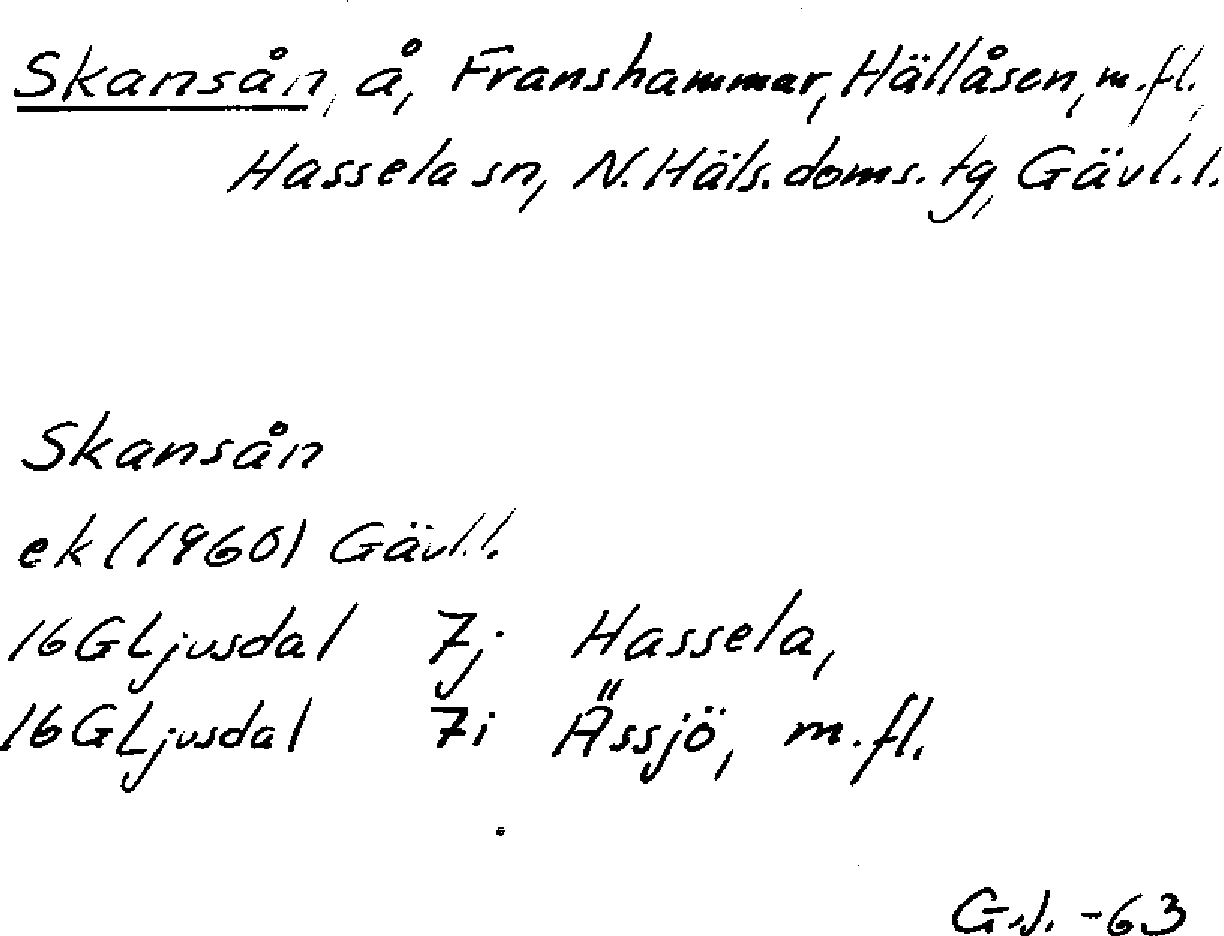 Skansån, å, Franshammar, Hällåsen, m.fl.,
Hassela sn, N. Häls. doms. tg, Gävl. l.
Skansån
ek (1960) Gävl. l.
16G Ljusdal 7j Hassela,
16G Ljusdal 7i Ässjö, m.fl.
G.J. -63